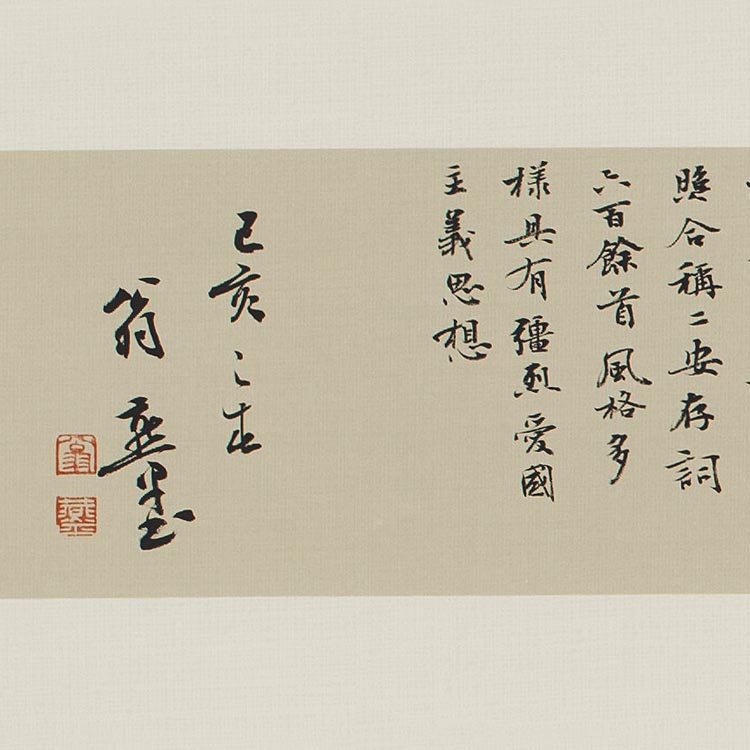 照合稱二安存詞
六百餘首風格多
樣具有彊烈愛國
主義思想
己亥之春
翁
翁